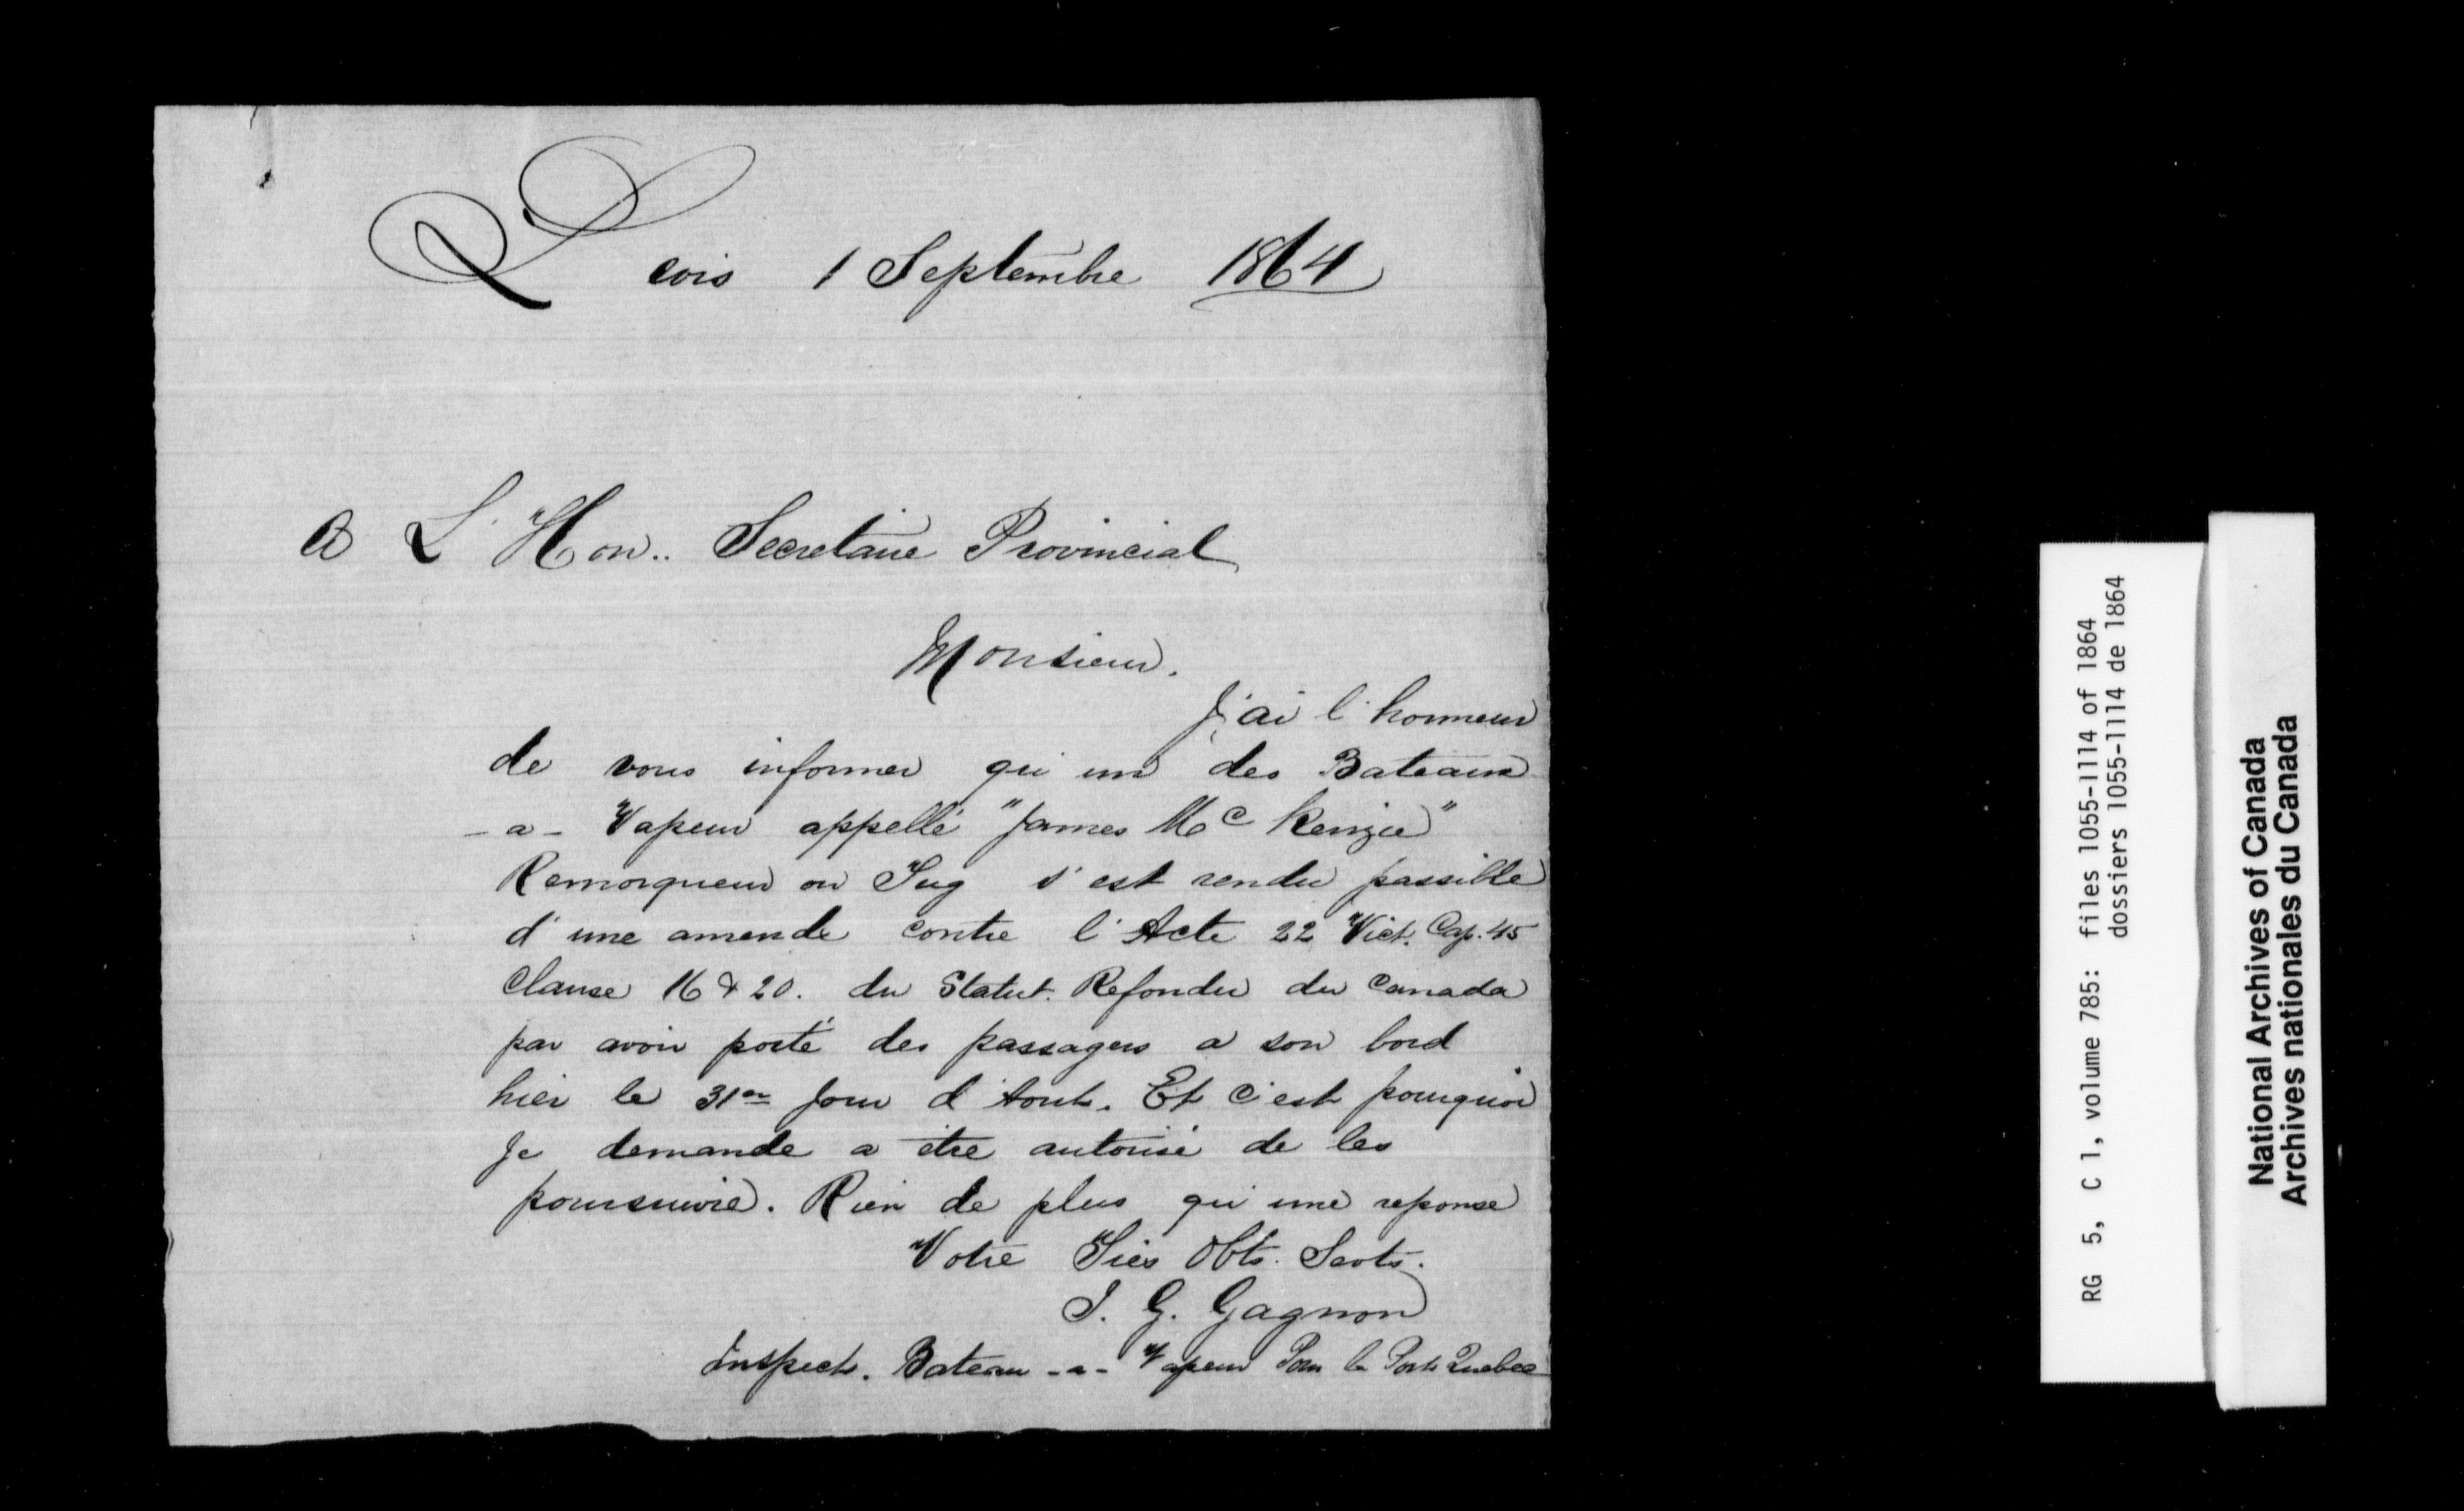 Levis 1 Septembre 1864
A L'Hon.. Secretaire Provincial
Monsieur.
J'ai l'honneur
de vous informer qu'un des Bateaux
- a - Vapeur appellé "James Mc Kenzie"
Remorqueur ou Tug s'est rendu passible
d'une amende contre l'Acte 22 Vict. Cap. 45
Clause 16 & 20. du Statut. Refondu du Canada
par avoir porté des passagers a son bord
hier le 31er Jour d'Aout. Et c'est pourquoi
Je demande a être autorisé de les
poursuivre. Rien de plus qu'une reponse
Votre Très Obts. Servts.
J. G. Gagnon
Inspect. Bateau - a - Vapeur Pour le Port Quebec
RG 5, C 1, volume 785: files 1055-1114 of 1864
dossiers 1055-1114 de 1864
National Archives of Canada
Archives nationales du Canada